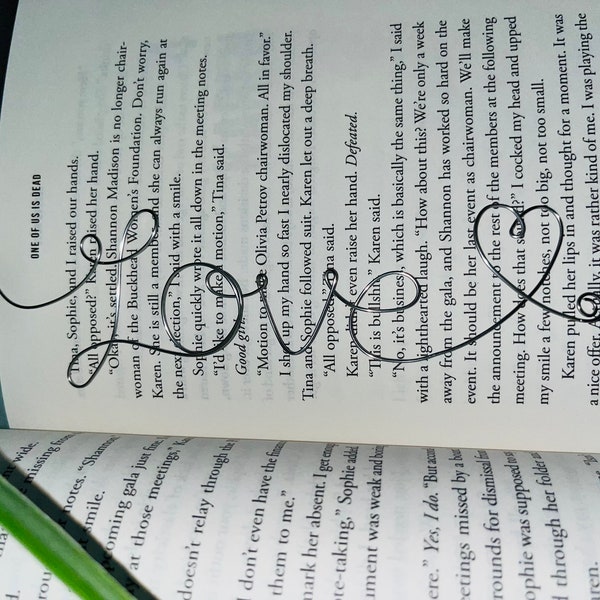 ONE OF US IS DEAD
Tina, Sophie, and I raised our hands.
"All opposed?" Karen raised her hand.
"Okay, it's settled. Shannon Madison is no longer chair-
woman of the Buckhead Women's Foundation. Don't worry,
Karen. She is still a member, and she can always run again at
the next election," I said with a smile.
Sophie quickly wrote it all down in the meeting notes.
"I'd like to make a motion," Tina said.
Good girl.
"Motion to make Olivia Petrov chairwoman. All in favor."
I shot up my hand so fast I nearly dislocated my shoulder.
Tina and Sophie followed suit. Karen let out a deep breath.
"All opposed," Tina said.
Karen didn't even raise her hand. Defeated.
"This is bullshit," Karen said.
"No, it's business, which is basically the same thing," I said
with a lighthearted laugh. "How about this? We're only a week
away from the gala, and Shannon has worked so hard on the
event. It should be her last event as chairwoman. We'll make
the announcement to the rest of the members at the following
meeting. How does that sound?" I cocked my head and upped
my smile a few notches, not too big, not too small.
Karen pulled her lips in and thought for a moment. It was
a nice offer. Actually, it was rather kind of me. I was playing the
Love
wide.
missing from
notes. "Shannon
smile.
upcoming gala just fine
at those meetings,"
doesn't relay through the
I don't even have the
them to me."
mark her absent. I get
note-taking," Sophie
was weak and
Yes, I do. "But
meetings missed by a
grounds for dismissal
Sophie was supposed to
through her folder